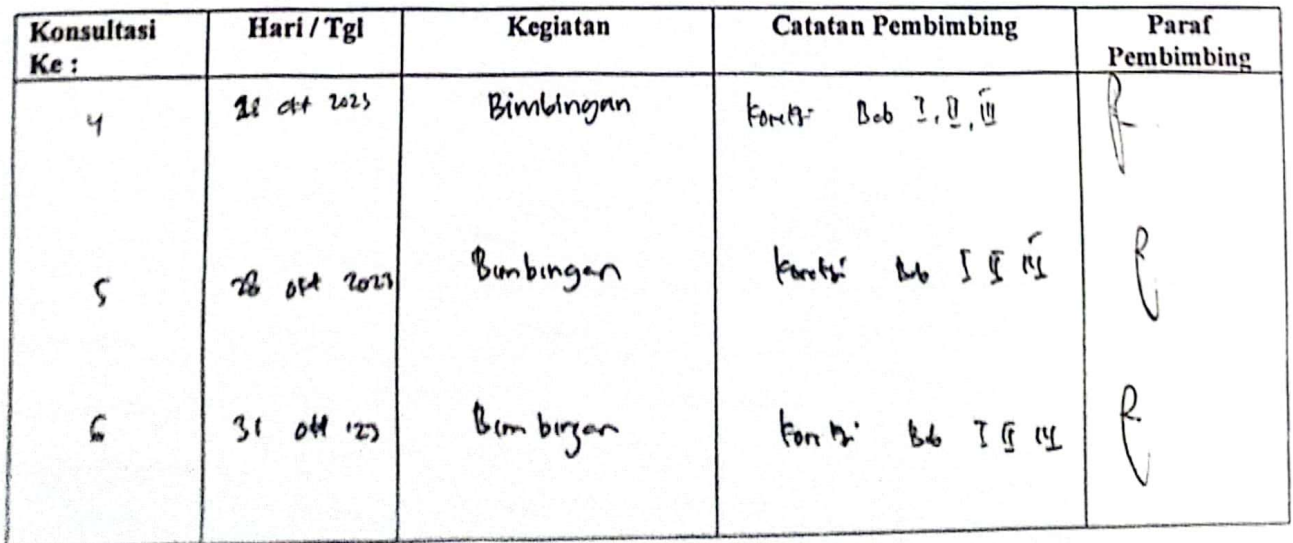 Konsultasi Ke : Hari / Tgl Kegiatan Catatan Pembimbing Paraf Pembimbing
4 okt 2023 Bimbingan Koreksi Bab I, II, III
5 28 okt 2023 Bimbingan Koreksi Bab I II III
6 31 okt '23 Bimbingan Koreksi Bab I II III